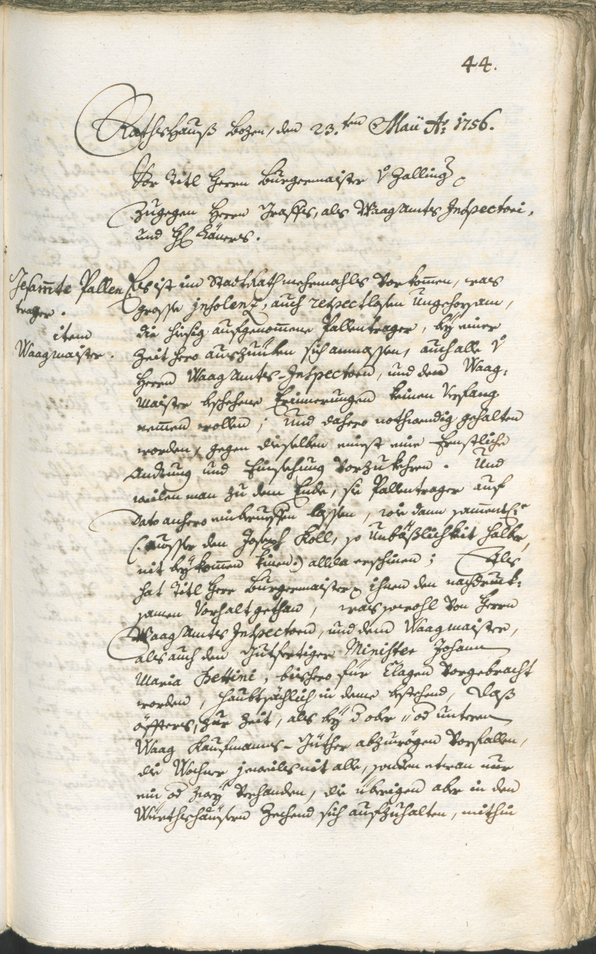 44.
Rathshauß Bozen, den 23.ten Maii Ao: 1756.
Vor Titl Herrn Burgermaister v Zalling
Zugegen Herrn Grasser, als WaagAmts Inspectori,
und
Gesam̄te Pallen
trager.
item
Waagmaister.
Es ist im StadtRath mehrmahls Vorkommen, was
grosse insolenz, auch respectlosen Ungehorsam,
die hiesig aufgenommene Pallentrager, bey einer
Zeit hero auszuüben sich anmassen, auch alle v
Herrn WaagAmts-Inspectorn, und dem Waag:
maister beschehene Erinnerungen keinen Verfang
nemmen wollen; Und dahero nothwendig gehalten
worden, gegen dieselben einest eine Ernstliche
Andtung und Einsehung Vorzukehren. Und
weilen man zu dem Ende, sie Pallentrager auf
Dato anhero einberueffen lassen, wie dann sament:e
(ausser den Joseph Koll, so Unbäßlichkeit halber,
nit beykommen können) allda erschinen; Als
hat Titl Herr Burgermaister ihnen den nachdruck:
samen Vorhalt gethan, was sowohl von Herrn
WaagAmts Inspectorn, und dem Waagmaister,
als auch dem Gutfertiger Ministre Johann
Maria Bettini, bishero für Clagen Vorgebracht
worden, haubtsächlich in deme bestehend, Daß
öffters, zur Zeit, als bey d ober: od untern
Waag Kaufmanns-Güther abzuwögen Vorfallen,
die Wochner jeweils nit alle, sondern etwan nur
ein od zway Verhanden, die übrigen aber in den
Würthshäusern Zechend sich aufzuhalten, mithin